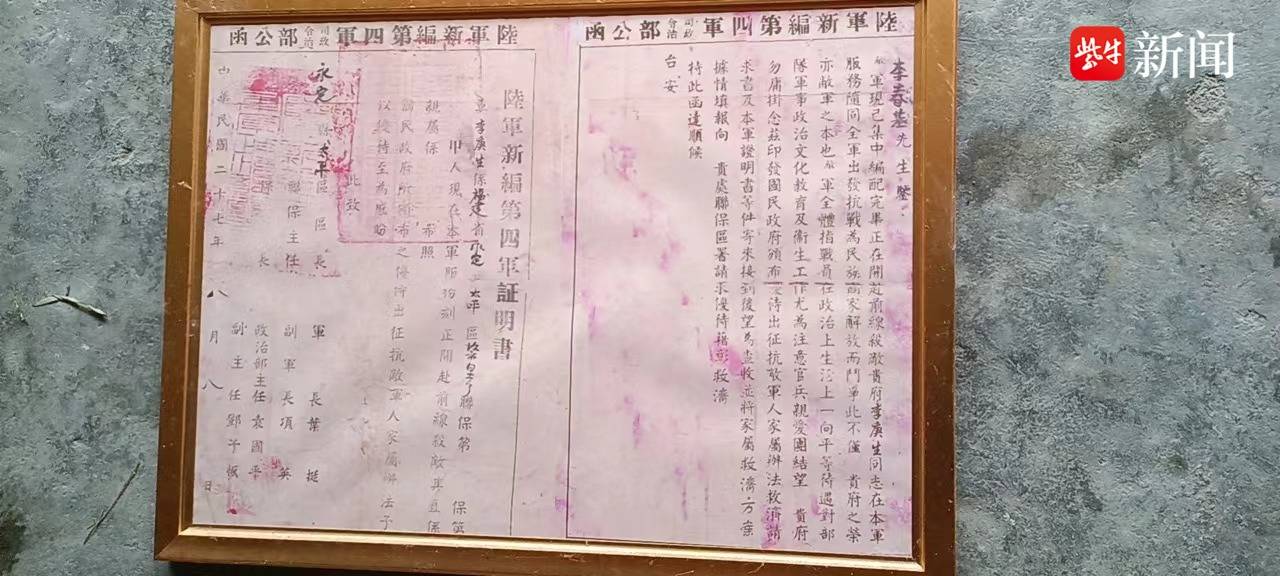 紫牛新闻
陸軍新編第四軍司令政治部公函
李春基先生鑒
敝軍現已集中編配完畢正在開赴前線殺敵貴府李庚生同志在本軍
服務隨同全軍出發抗戰為民族國家解放而鬥爭此不僅 貴府之榮
亦敝軍之本也敝軍全體指戰員在政治上生活上一向平等待遇對部
隊軍事政治文化教育及衛生工作尤為注意官兵親愛團結望 貴府
勿庸掛念茲印發國民政府頒布優待出征抗敵軍人家屬辦法救濟請
求書及本軍證明書等件寄來接到後望為查收並將家屬救濟方案
據情填報向 貴處聯保區署請求優待藉彰救濟
持此函達順候
台安
陸軍新編第四軍司令政治部公函
陸軍新編第四軍証明書
查李庚生係福建省永定 太平區 聯保第 保第
甲人現在本軍服務刻正開赴前線殺敵其直係
親屬係 希照
國民政府所頒布之優待出征抗敵軍人家屬辦法予
以優待至為感盼
此致
永定縣太平區區長
聯保主任
保長
軍長葉挺
副軍長項英
政治部主任袁國平
副主任鄧子恢
中華民國二十七年八月八日